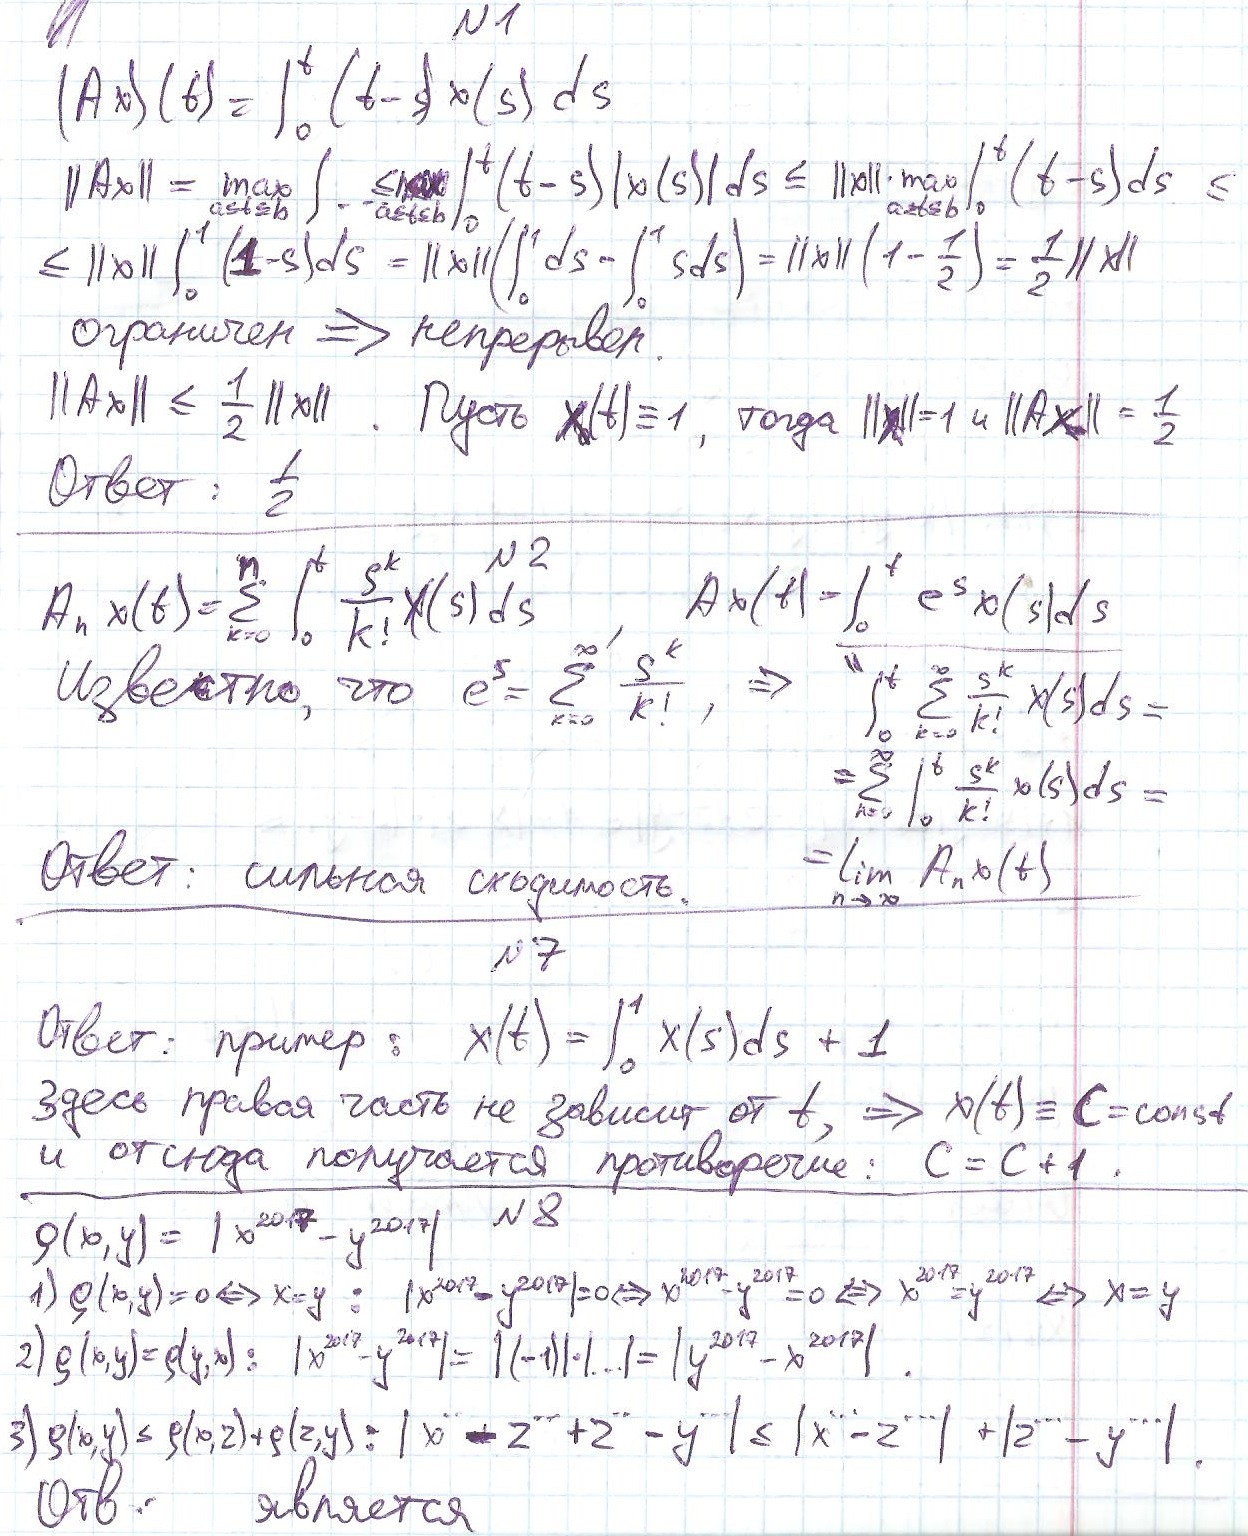 N1
(Ax)(t) = ∫₀ᵗ (t-s) x(s) ds
||Ax|| = max_{a≤t≤b} ∫... ≤ max_{a≤t≤b} ∫₀ᵗ (t-s)|x(s)|ds ≤ ||x||·max_{a≤t≤b} ∫₀ᵗ (t-s)ds ≤
≤ ||x|| ∫₀¹ (1-s)ds = ||x|| (∫₀¹ ds - ∫₀¹ sds) = ||x|| (1 - 1/2) = 1/2 ||x||
ограничен => непрерывен.
||Ax|| ≤ 1/2 ||x|| . Пусть x(t)≡1, тогда ||x||=1 и ||Ax|| = 1/2
Ответ: 1/2
N2
Aₙ x(t) = Σ_{k=0}^{n} ∫₀ᵗ s^k/k! x(s) ds , Ax(t) = ∫₀ᵗ e^s x(s)ds
Известно, что e^s = Σ_{k=0}^{∞} s^k/k! , => ∫₀ᵗ Σ_{k=0}^{∞} s^k/k! x(s)ds =
= Σ_{k=0}^{∞} ∫₀ᵗ s^k/k! x(s)ds =
= lim_{n→∞} Aₙ x(t)
Ответ: сильная сходимость.
N7
Ответ: пример: x(t) = ∫₀¹ x(s)ds + 1
Здесь правая часть не зависит от t, => x(t) ≡ C = const
и отсюда получается противоречие: C = C+1.
N8
ρ(x,y) = |x^2017 - y^2017|
1) ρ(x,y)=0 <=> x=y : |x^2017 - y^2017|=0 <=> x^2017 - y^2017 = 0 <=> x^2017 = y^2017 <=> x = y
2) ρ(x,y)=ρ(y,x): |x^2017 - y^2017| = |(-1)|·|...| = |y^2017 - x^2017| .
3) ρ(x,y) ≤ ρ(x,z)+ρ(z,y): |x^... - z^... + z^... - y^...| ≤ |x^... - z^...| + |z^... - y^...| .
Отв.: является